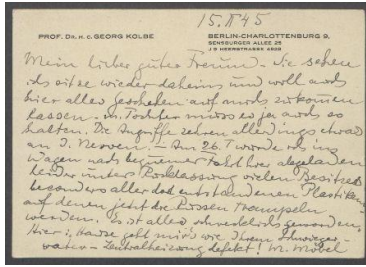 15.II 45
PROF. DR. H. C. GEORG KOLBE
BERLIN-CHARLOTTENBURG 9,
SENSBURGER ALLEE 25
J 9 HEERSTRASSE 4502
Mein lieber guter Freund - Sie sehen
ich sitze wieder daheim und will auch
hier alles Geschehen auf mich zukommen
lassen. - m. Tochter muss es ja auch so
halten. Die Angriffe zehren allerdings etwas
an I. Nerven. - Am 26. I wurde ich im
Wagen nach bequemer Fahrt hier abgeladen
leider unter Rücklassung vielen Besitzes
besonders aller dort entstandenen Plastiken
auf denen jetzt die Russen trampeln
werden. Es ist alles schrecklich geworden.
Hier i. Hause geht mir's wie Ihrem Schwieger
vater - Zentralheizung defekt! M. Möbel